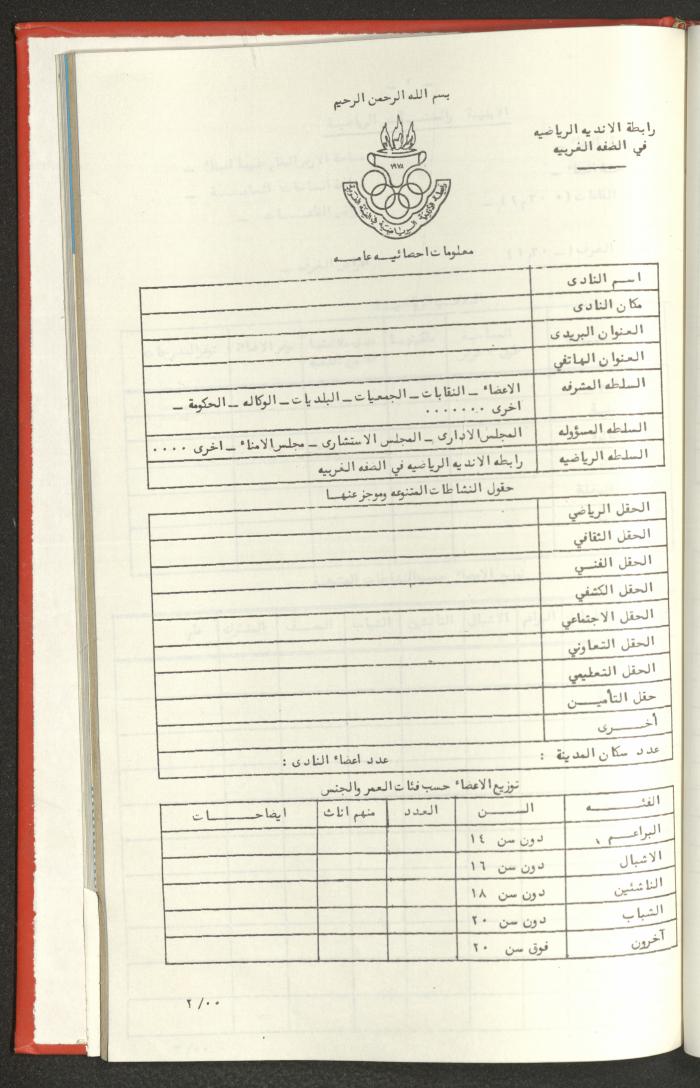 بسم الله الرحمن الرحيم
رابطة الانديه الرياضيه
في الضفه الغربيه
١٩٧٨
معلومات احصائيـه عامـه
اسـم النادى
مكان النادى
العنوان البريدى
العنوان الهاتفي
السلطه المشرفه الاعضاء ـ النقابات ـ الجمعيات ـ البلديات ـ الوكاله ـ الحكومة ـ
اخرى .......
السلطه المسؤوله المجلس الادارى ـ المجلس الاستشارى ـ مجلس الامناء ـ اخرى ....
السلطه الرياضيه رابطه الانديه الرياضيه في الضفه الغربيه
حقول النشاطات المتنوعه وموجز عنهـا
الحقل الرياضي
الحقل الثقافي
الحقل الفنـي
الحقل الكشفي
الحقل الاجتماعي
الحقل التعاوني
الحقل التعليمي
حقل التأميـن
أخـرى
عدد سكان المدينة : عدد اعضاء النادى :
توزيع الاعضاء حسب فئات العمر والجنس
الفئـه السـن العدد منهم اناث ايضاحـات
البراعـم دون سن ١٤
الاشبال دون سن ١٦
الناشئين دون سن ١٨
الشباب دون سن ٢٠
آخرون فوق سن ٢٠
٢/٠٠